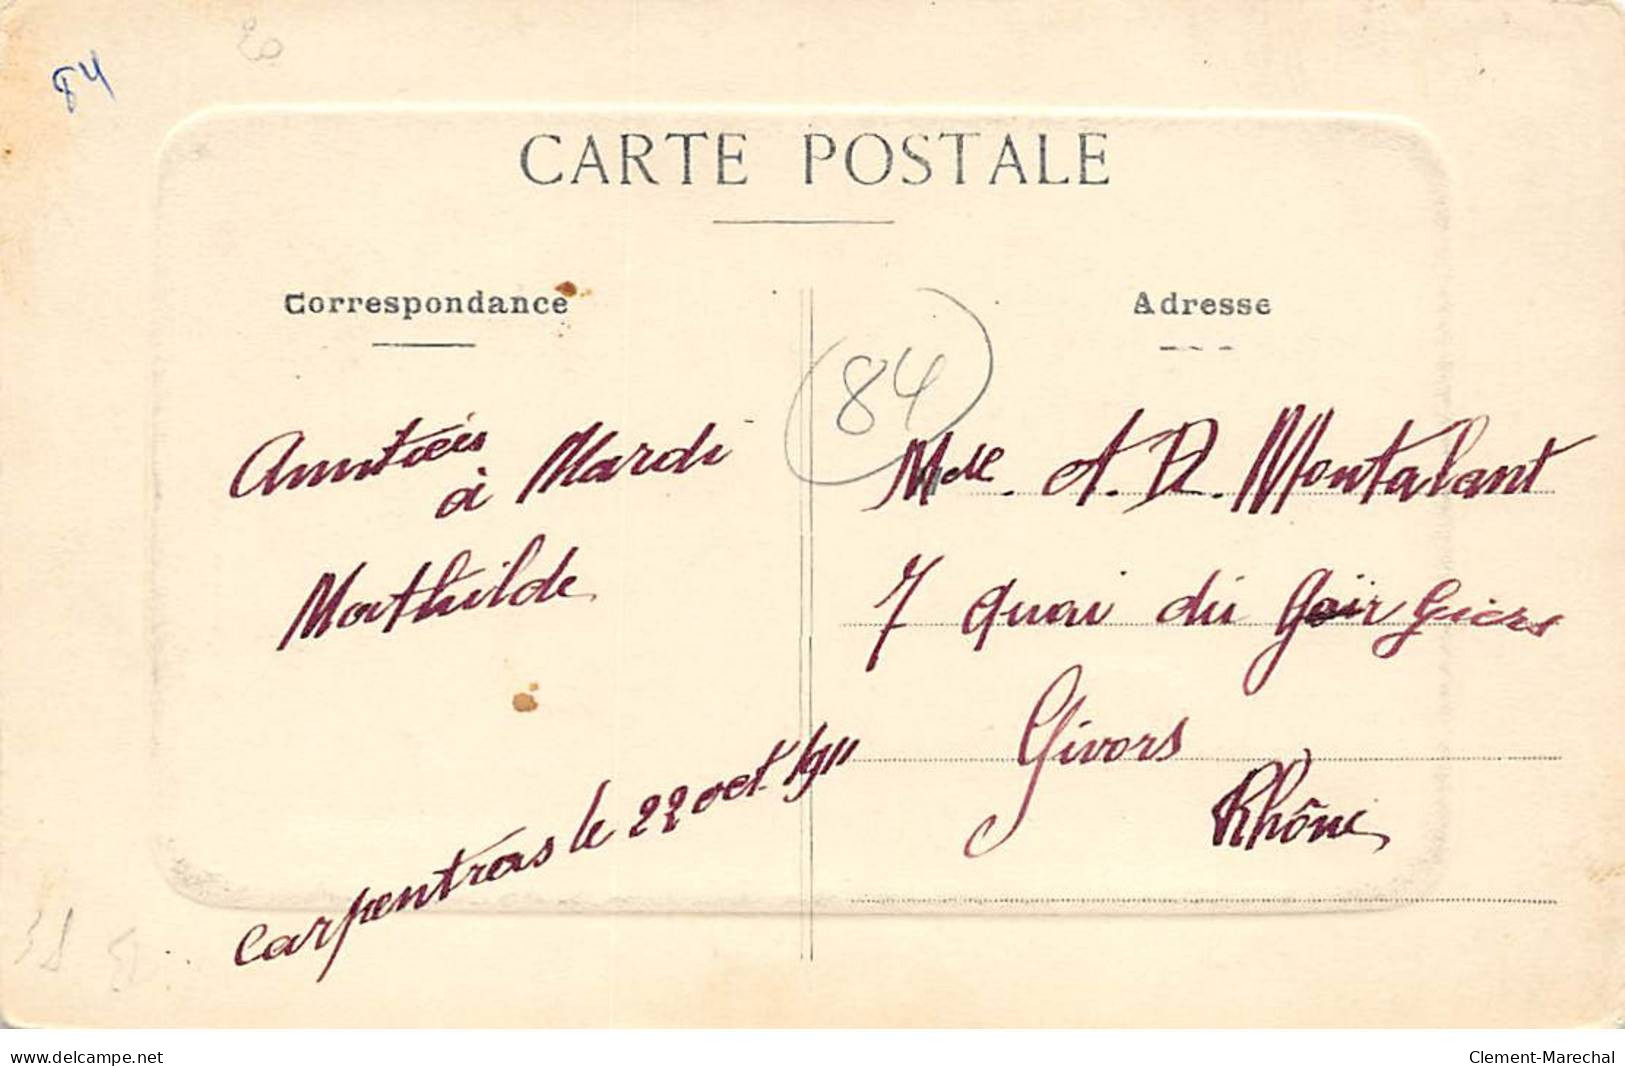 84
CARTE POSTALE
Correspondance
Adresse
(84)
Amitiés
à Mardi
Mathilde
Carpentras le 22 oct 1911
Melle. A. D. Montalant
7 Quai du Gier Giers
Givors
Rhône
www.delcampe.net
Clement-Marechal